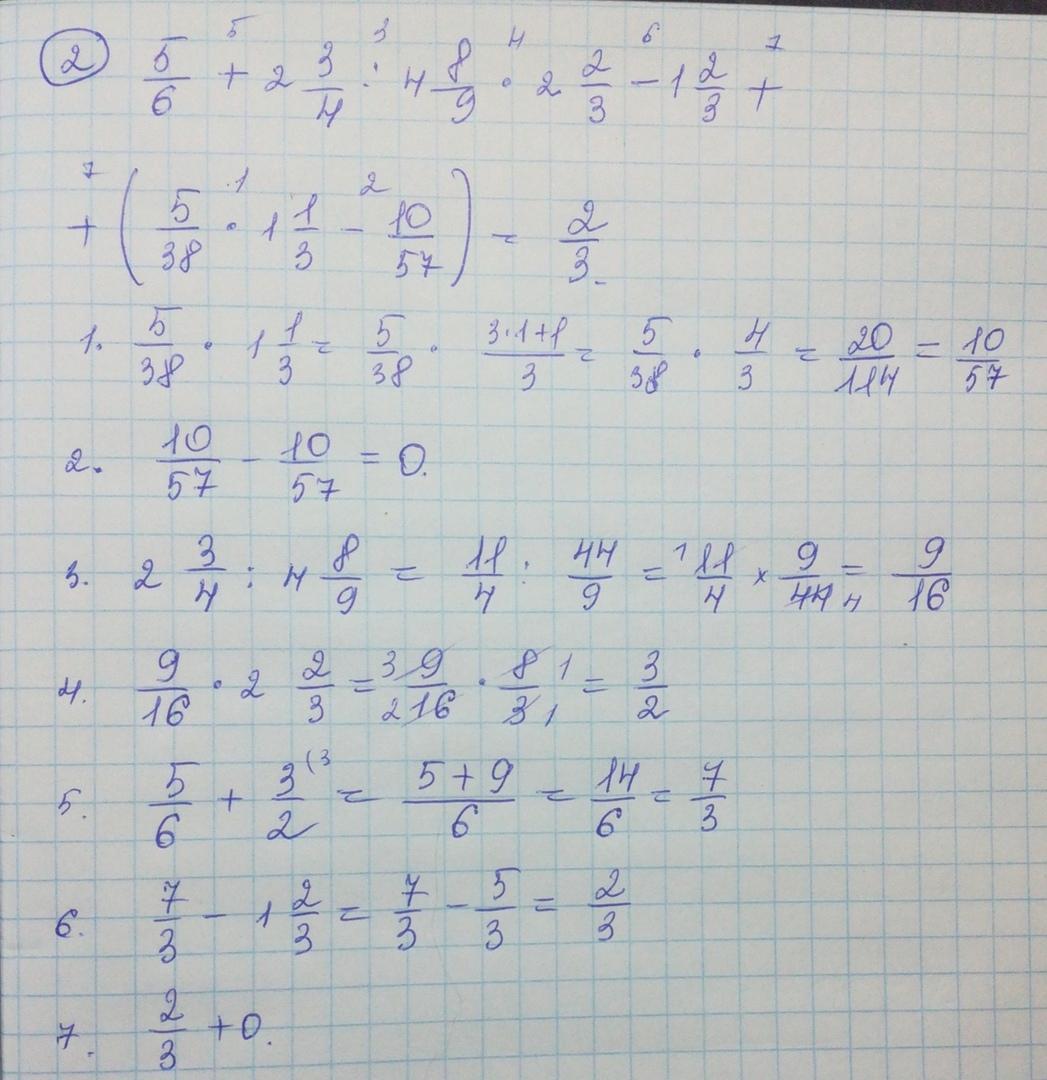 ② 5/6 +⁵ 2 3/4 :³ 4 8/9 ·⁴ 2 2/3 -⁶ 1 2/3 +⁷
+⁷ (5/38 ·¹ 1 1/3 -² 10/57) = 2/3.
1. 5/38 · 1 1/3 = 5/38 · (3·1+1)/3 = 5/38 · 4/3 = 20/114 = 10/57
2. 10/57 - 10/57 = 0.
3. 2 3/4 : 4 8/9 = 11/4 : 44/9 = ¹11/4 × 9/44 ₄ = 9/16
4. 9/16 · 2 2/3 = ³9/₂16 · 8 ¹/3 ₁ = 3/2
5. 5/6 + 3/2 ⁽³ = (5+9)/6 = 14/6 = 7/3
6. 7/3 - 1 2/3 = 7/3 - 5/3 = 2/3
7. 2/3 + 0.